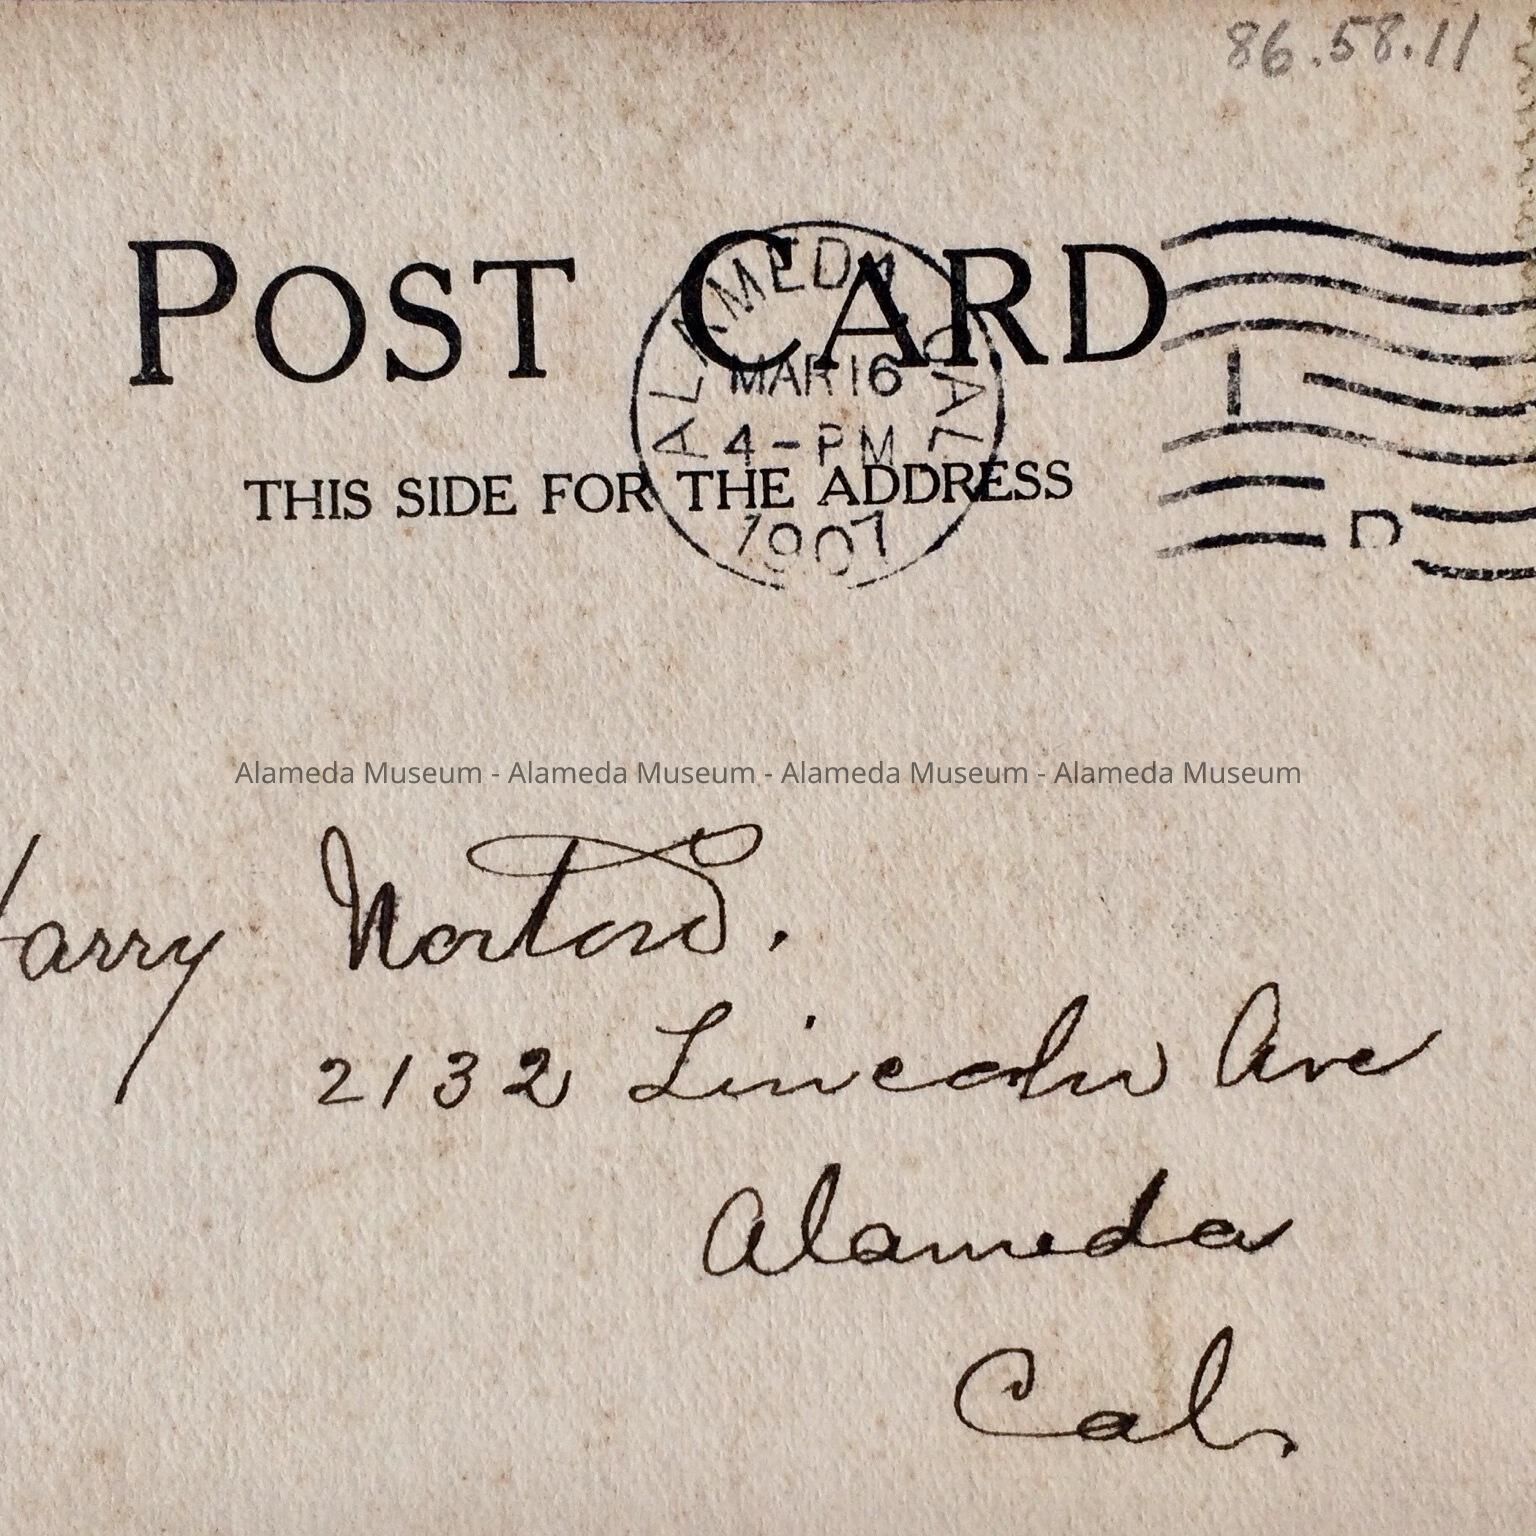 86.58.11
POST CARD
ALAMEDA CAL
MAR 16
4-PM
1907
I
D
THIS SIDE FOR THE ADDRESS
Alameda Museum - Alameda Museum - Alameda Museum - Alameda Museum
Harry Norton.
2132 Lincoln Ave
Alameda
Cal.